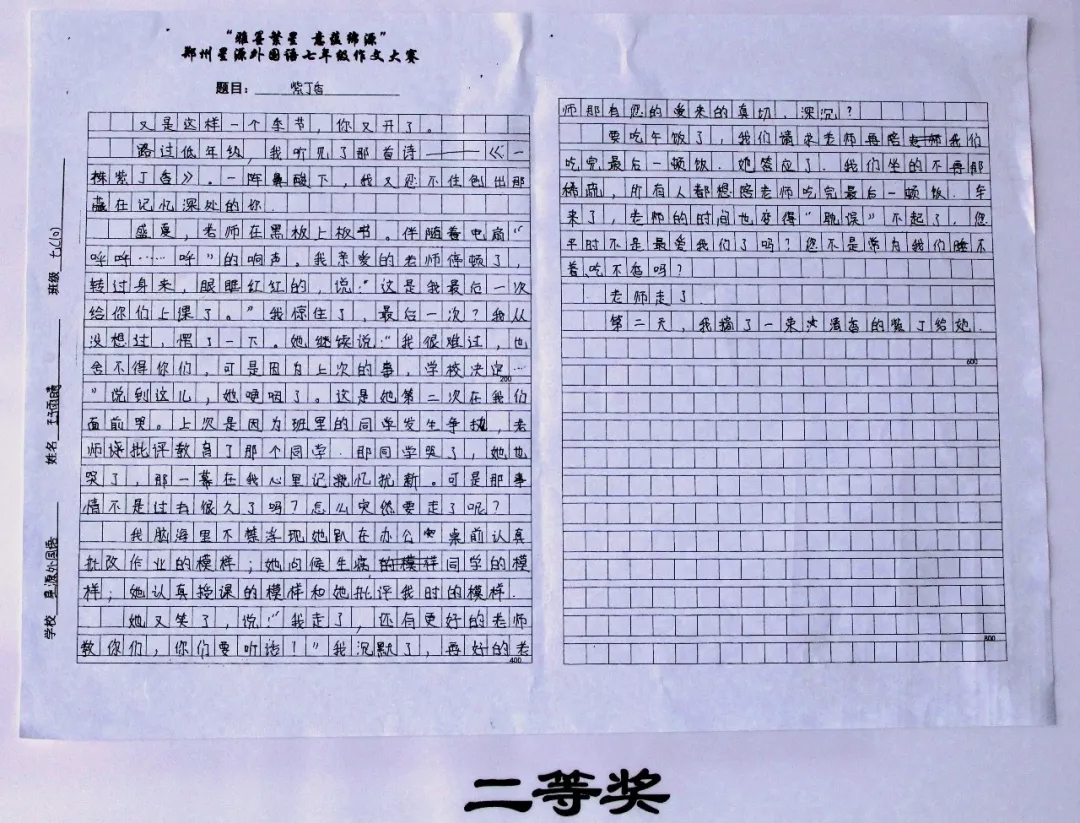 “雅墨繁星 意蕴绵源”
郑州星源外国语七年级作文大赛
题目：紫丁香
学校 星源外国语
姓名
班级 七(10)
又是这样一个季节，你又开了。
路过低年级，我听见了那首诗——《一
株紫丁香》。一阵鼻酸下，我又忍不住包出那
藏在记忆深处的你.
盛夏，老师在黑板上板书。伴随着电扇“
呼呼……呼”的响声。我亲爱的老师停顿了，
转过身来，眼眶红红的，说：“这是我最后一次
给你们上课了。”我惊住了，最后一次？我从
没想过，愣了一下。她继续说：“我很难过，也
舍不得你们，可是因为上次的事，学校决定…
”说到这儿，她哽咽了。这是她第二次在我们
200
面前哭。上次是因为班里的同学发生争执，老
师 批评教育了那个同学.那同学哭了，她也
哭了，那一幕在我心里记忆犹新。可是那事
情不是过去很久了吗？怎么突然要走了呢？
我脑海里不禁浮现她趴在办公桌前认真
批改作业的模样；她问候生病同学的模
样；她认真授课的模样和她批评我时的模样.
她又笑了，说：“我走了，还有更好的老师
教你们，你们要听话！”我沉默了，再好的老
400
师那有您的爱来的真切、深沉？
要吃午饭了，我们请求老师再陪我们
吃完最后一顿饭.她答应了.我们坐的不再那
稀疏，所有人都想陪老师吃完最后一顿饭.车
来了，老师的时间也变得“耽误”不起了，您
平时不是最爱我们了吗？您不是常为我们睡不
着吃不香吗？
老师走了.
第二天，我摘了一束 清香的紫丁给她.
600
800
二等奖